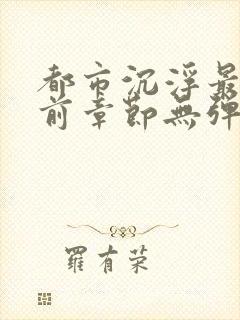 都市沉浮最
前章節無彈
羅有荣